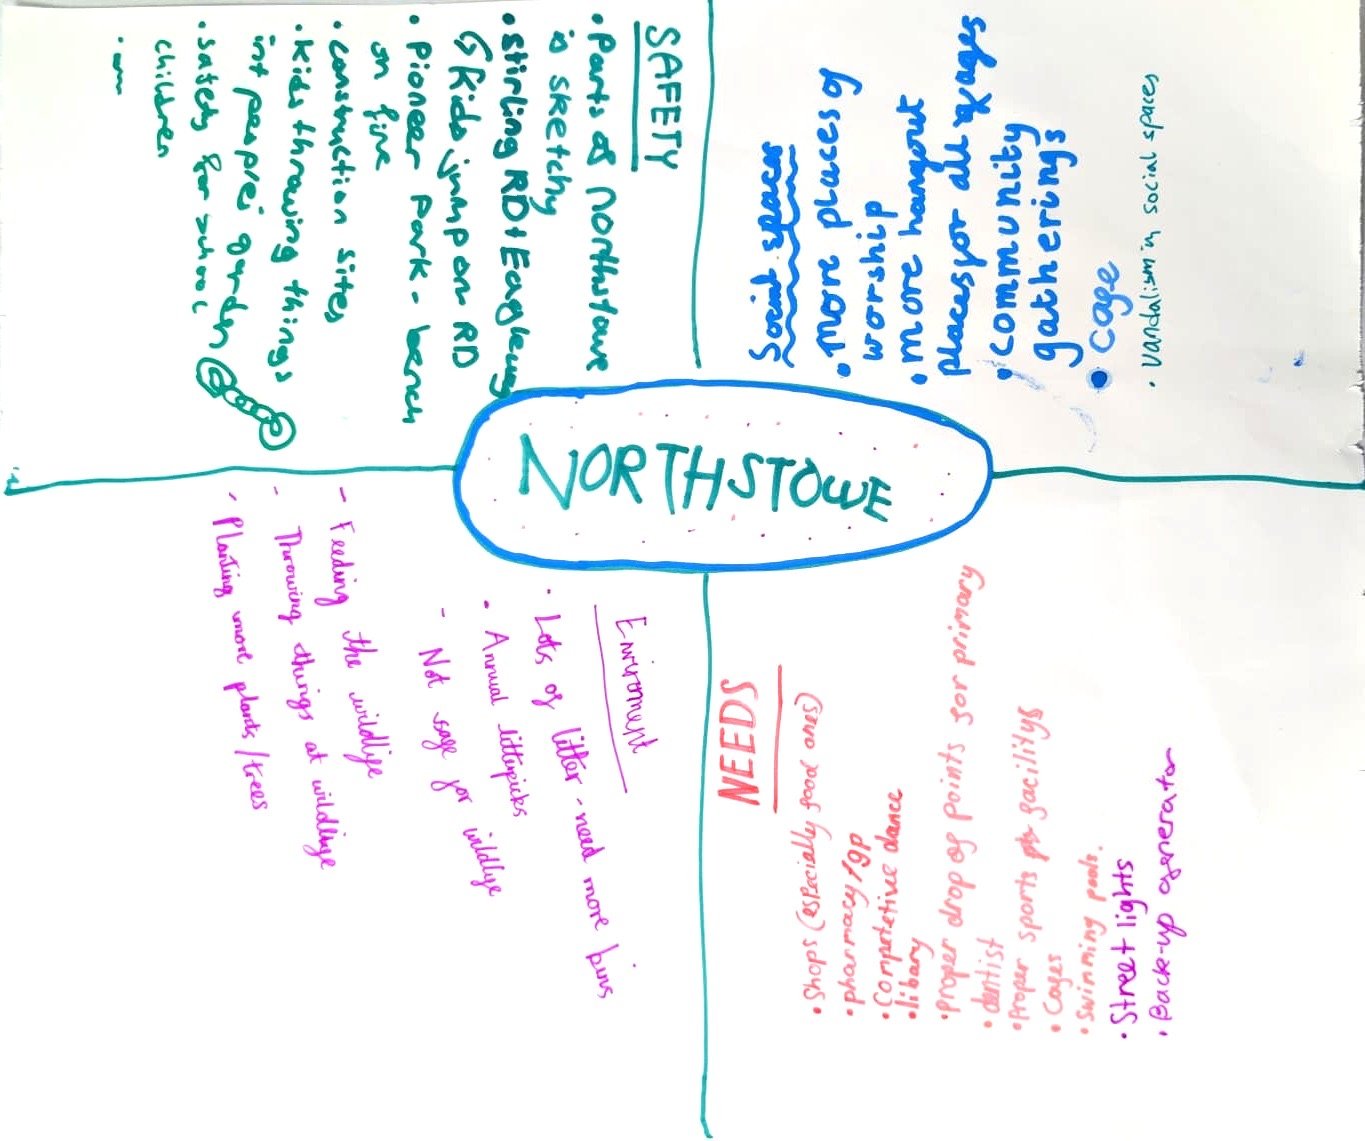 NORTHSTOWE
SAFETY
• Parts of Northstowe
is sketchy
• Stirling RD + Eagleway
↳ Kids jump on RD
• Pioneer Park - bench
on fire
• Construction sites
• Kids throwing things
int peoples' garden
• Safety for school
children
Social spaces
• more places of
worship
• more hangout
places for all ages
• community
gatherings
• Cafe
• Vandalism in social spaces
Environment
• Lots of litter - need more bins
• Annual litterpicks
- Not safe for wildlife
- Feeding the wildlife
- Throwing things at wildlife
- Planting more plants/trees
NEEDS
• Shops (especially food ones)
• pharmacy/gp
• Competetive dance
• libary
• Proper drop of points for primary
• dentist
• Proper sports facilitys
• Cafes
• Swinming pools.
• Street lights
• Back-up generator